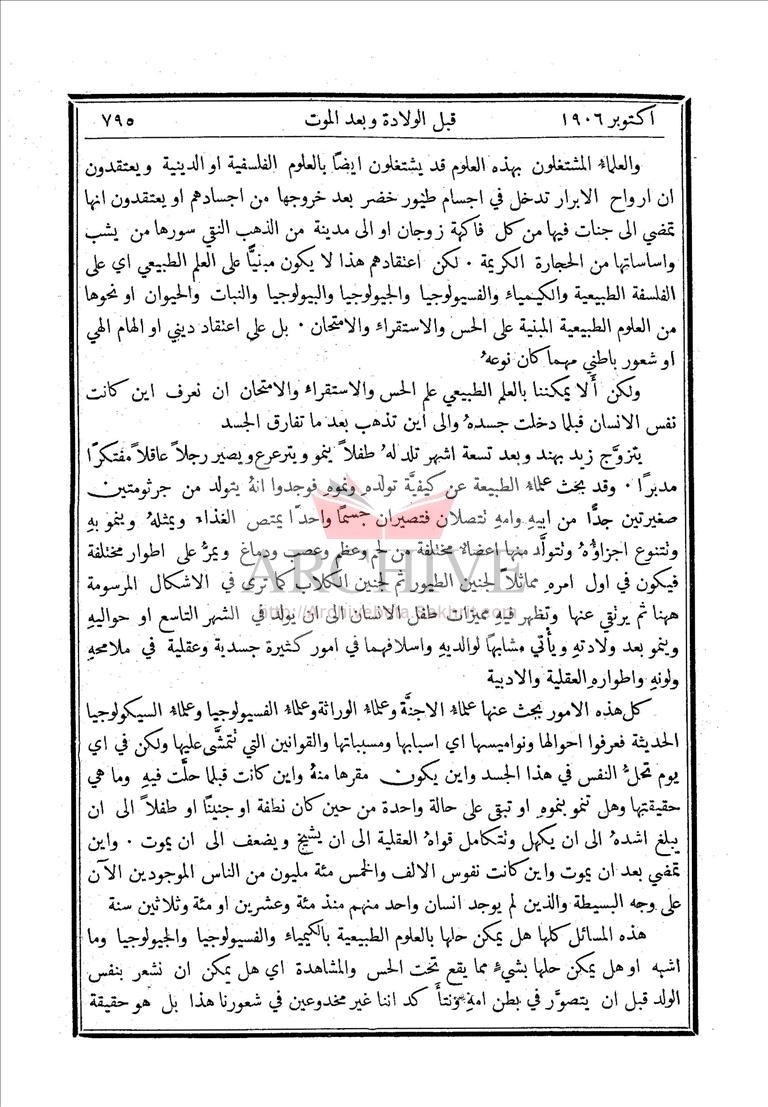 اكتوبر ١٩٠٦ قبل الولادة وبعد الموت ٧٩٥
والعلماءُ المشتغلون بهذه العلوم قد يشتغلون ايضًا بالعلوم الفلسفية او الدينية ويعتقدون
ان ارواح الابرار تدخل في اجسام طيور خضر بعد خروجها من اجسادهم او يعتقدون انها
تمضي الى جنات فيها من كل فاكهة زوجان او الى مدينة من الذهب النقي سورها من يشب
واساساتها من الحجارة الكريمة ٠ لكن اعتقادهم هذا لا يكون مبنيًّا على العلم الطبيعي اي على
الفلسفة الطبيعية والكيمياء والفسيولوجيا والجيولوجيا والبيولوجيا والنبات والحيوان او نحوها
من العلوم الطبيعية المبنية على الحس والاستقراء والامتحان ٠ بل على اعتقاد ديني او الهام الهي
او شعور باطني مهما كان نوعهُ
ولكن أَلا يمكننا بالعلم الطبيعي علم الحس والاستقراء والامتحان ان نعرف اين كانت
نفس الانسان قبلما دخلت جسدهُ والى اين تذهب بعد ما تفارق الجسد
يتزوَّج زيد بهند وبعد تسعة اشهر تلد لهُ طفلاً ينمو ويترعرع ويصير رجلاً عاقلاً مفتكرًا
مدبرًا ٠ وقد بحث علماءُ الطبيعة عن كيفيَّة تولُّدهِ ونموهِ فوجدوا انهُ يتولد من جرثومتين
صغيرتين جدًّا من ابيهِ وامهِ تتصلان فتصيران جسمًا واحدًا يمتص الغذاءَ ويمثلهُ وينمو بهِ
وتتنوع اجزاؤُهُ وتتولَّد منها اعضاءٌ مختلفة من لحم وعظم وعصب ودماغ ويمرُّ على اطوار مختلفة
فيكون في اول امرهِ مماثلاً لجنين الطيور ثم لجنين الكلاب كما ترى في الاشكال المرسومة
ههنا ثم يرتقي عنها وتظهر فيهِ مميزات طفل الانسان الى ان يولد في الشهر التاسع او حواليهِ
وينمو بعد ولادتهِ ويأتي مشابهًا لوالديهِ واسلافهما في امور كثيرة جسدية وعقلية في ملامحهِ
ولونهِ واطوارهِ العقلية والادبية
كل هذه الامور بحث عنها علماءُ الاجنَّة وعلماءُ الوراثة وعلماءُ الفسيولوجيا وعلماءُ السيكولوجيا
الحديثة فعرفوا احوالها ونواميسها اي اسبابها ومسبباتها والقوانين التي تتمشَّى عليها ولكن في اي
يوم تحلُّ النفس في هذا الجسد واين يكون مقرها منهُ واين كانت قبلما حلَّت فيهِ وما هي
حقيقتها وهل تنمو بنموهِ او تبقى على حالة واحدة من حين كان نطفة او جنينًا او طفلاً الى ان
يبلغ اشدهُ الى ان يكهل وتتكامل قواهُ العقلية الى ان يشيخ ويضعف الى ان يموت ٠ واين
تمضي بعد ان يموت واين كانت نفوس الالف والخمس مئة مليون من الناس الموجودين الآن
على وجه البسيطة والذين لم يوجد انسان واحد منهم منذ مئة وعشرين او مئة وثلاثين سنة
هذه المسائل كلها هل يمكن حلها بالعلوم الطبيعية بالكيمياء والفسيولوجيا والجيولوجيا وما
اشبه او هل يمكن حلها بشيءٍ مما يقع تحت الحس والمشاهدة اي هل يمكن ان نشعر بنفس
الولد قبل ان يتصوَّر في بطن امهِ ونتأَكد اننا غير مخدوعين في شعورنا هذا بل هو حقيقة
ARCHIVE
http://Archivebeta.Sakhrit.com